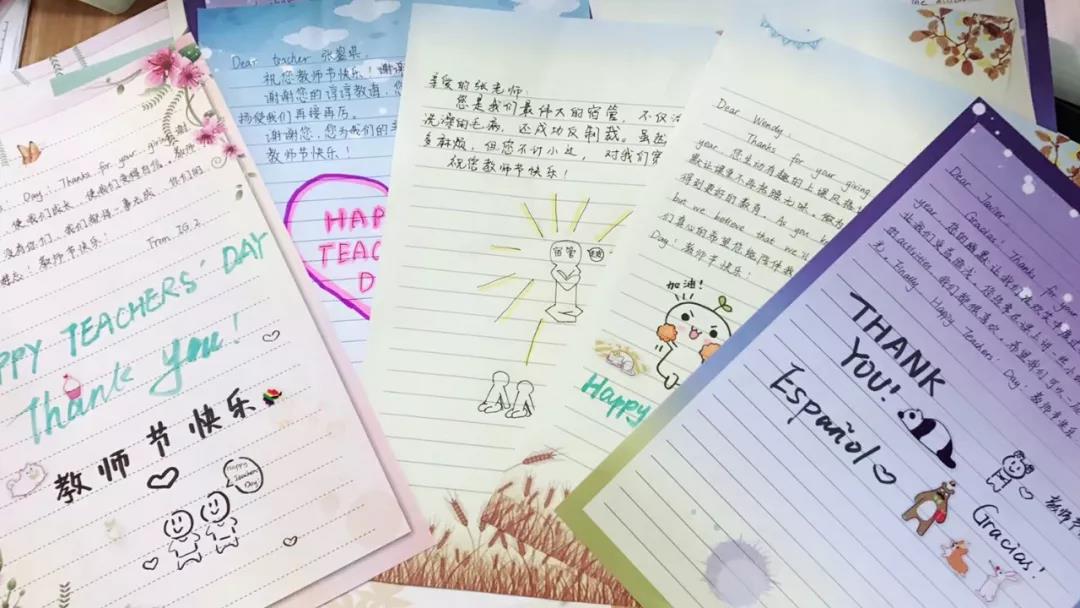 Day: Thanks for your giving
使我们成长，使我们变得自信，教师
没有你们，我们都将一事无成，你们的
教师节快乐！
From IG.2.
HAPPY TEACHERS' DAY
Thank you!
教师节快乐
Happy Teachers Day
Dear teacher 张
祝您教师节快乐！谢谢
谢谢您的谆谆教诲，您
扬使我们再接再厉。
谢谢您，您为我们的
教师节快乐！
HAPP
TEAC
D
亲爱的张老师：
您是我们最伟大的宿管，不仅治
洗澡的毛病，还成功反制我。虽然
多麻烦，但您不计小过，对我们
祝您教师节快乐！
宿管
Dear Wendy:
Thanks for your giving
year. 您生动有趣的上课风格
默让课堂不再枯燥无味，
得到更好的教育。As you k
but we believe that we
们真心的希望您能陪伴我
Day! 教师节快乐！
加油！
Happy
Dear Javier
Gracias! Thanks for your
year. 您的幽默让我们
让我们受益匪浅。您经常在课上讲
的activities，我们都很喜欢。希望我们可以
Finally, Happy Teachers' Day! 教师节快乐
THANK
YOU!
Español
Gracias!
教师节